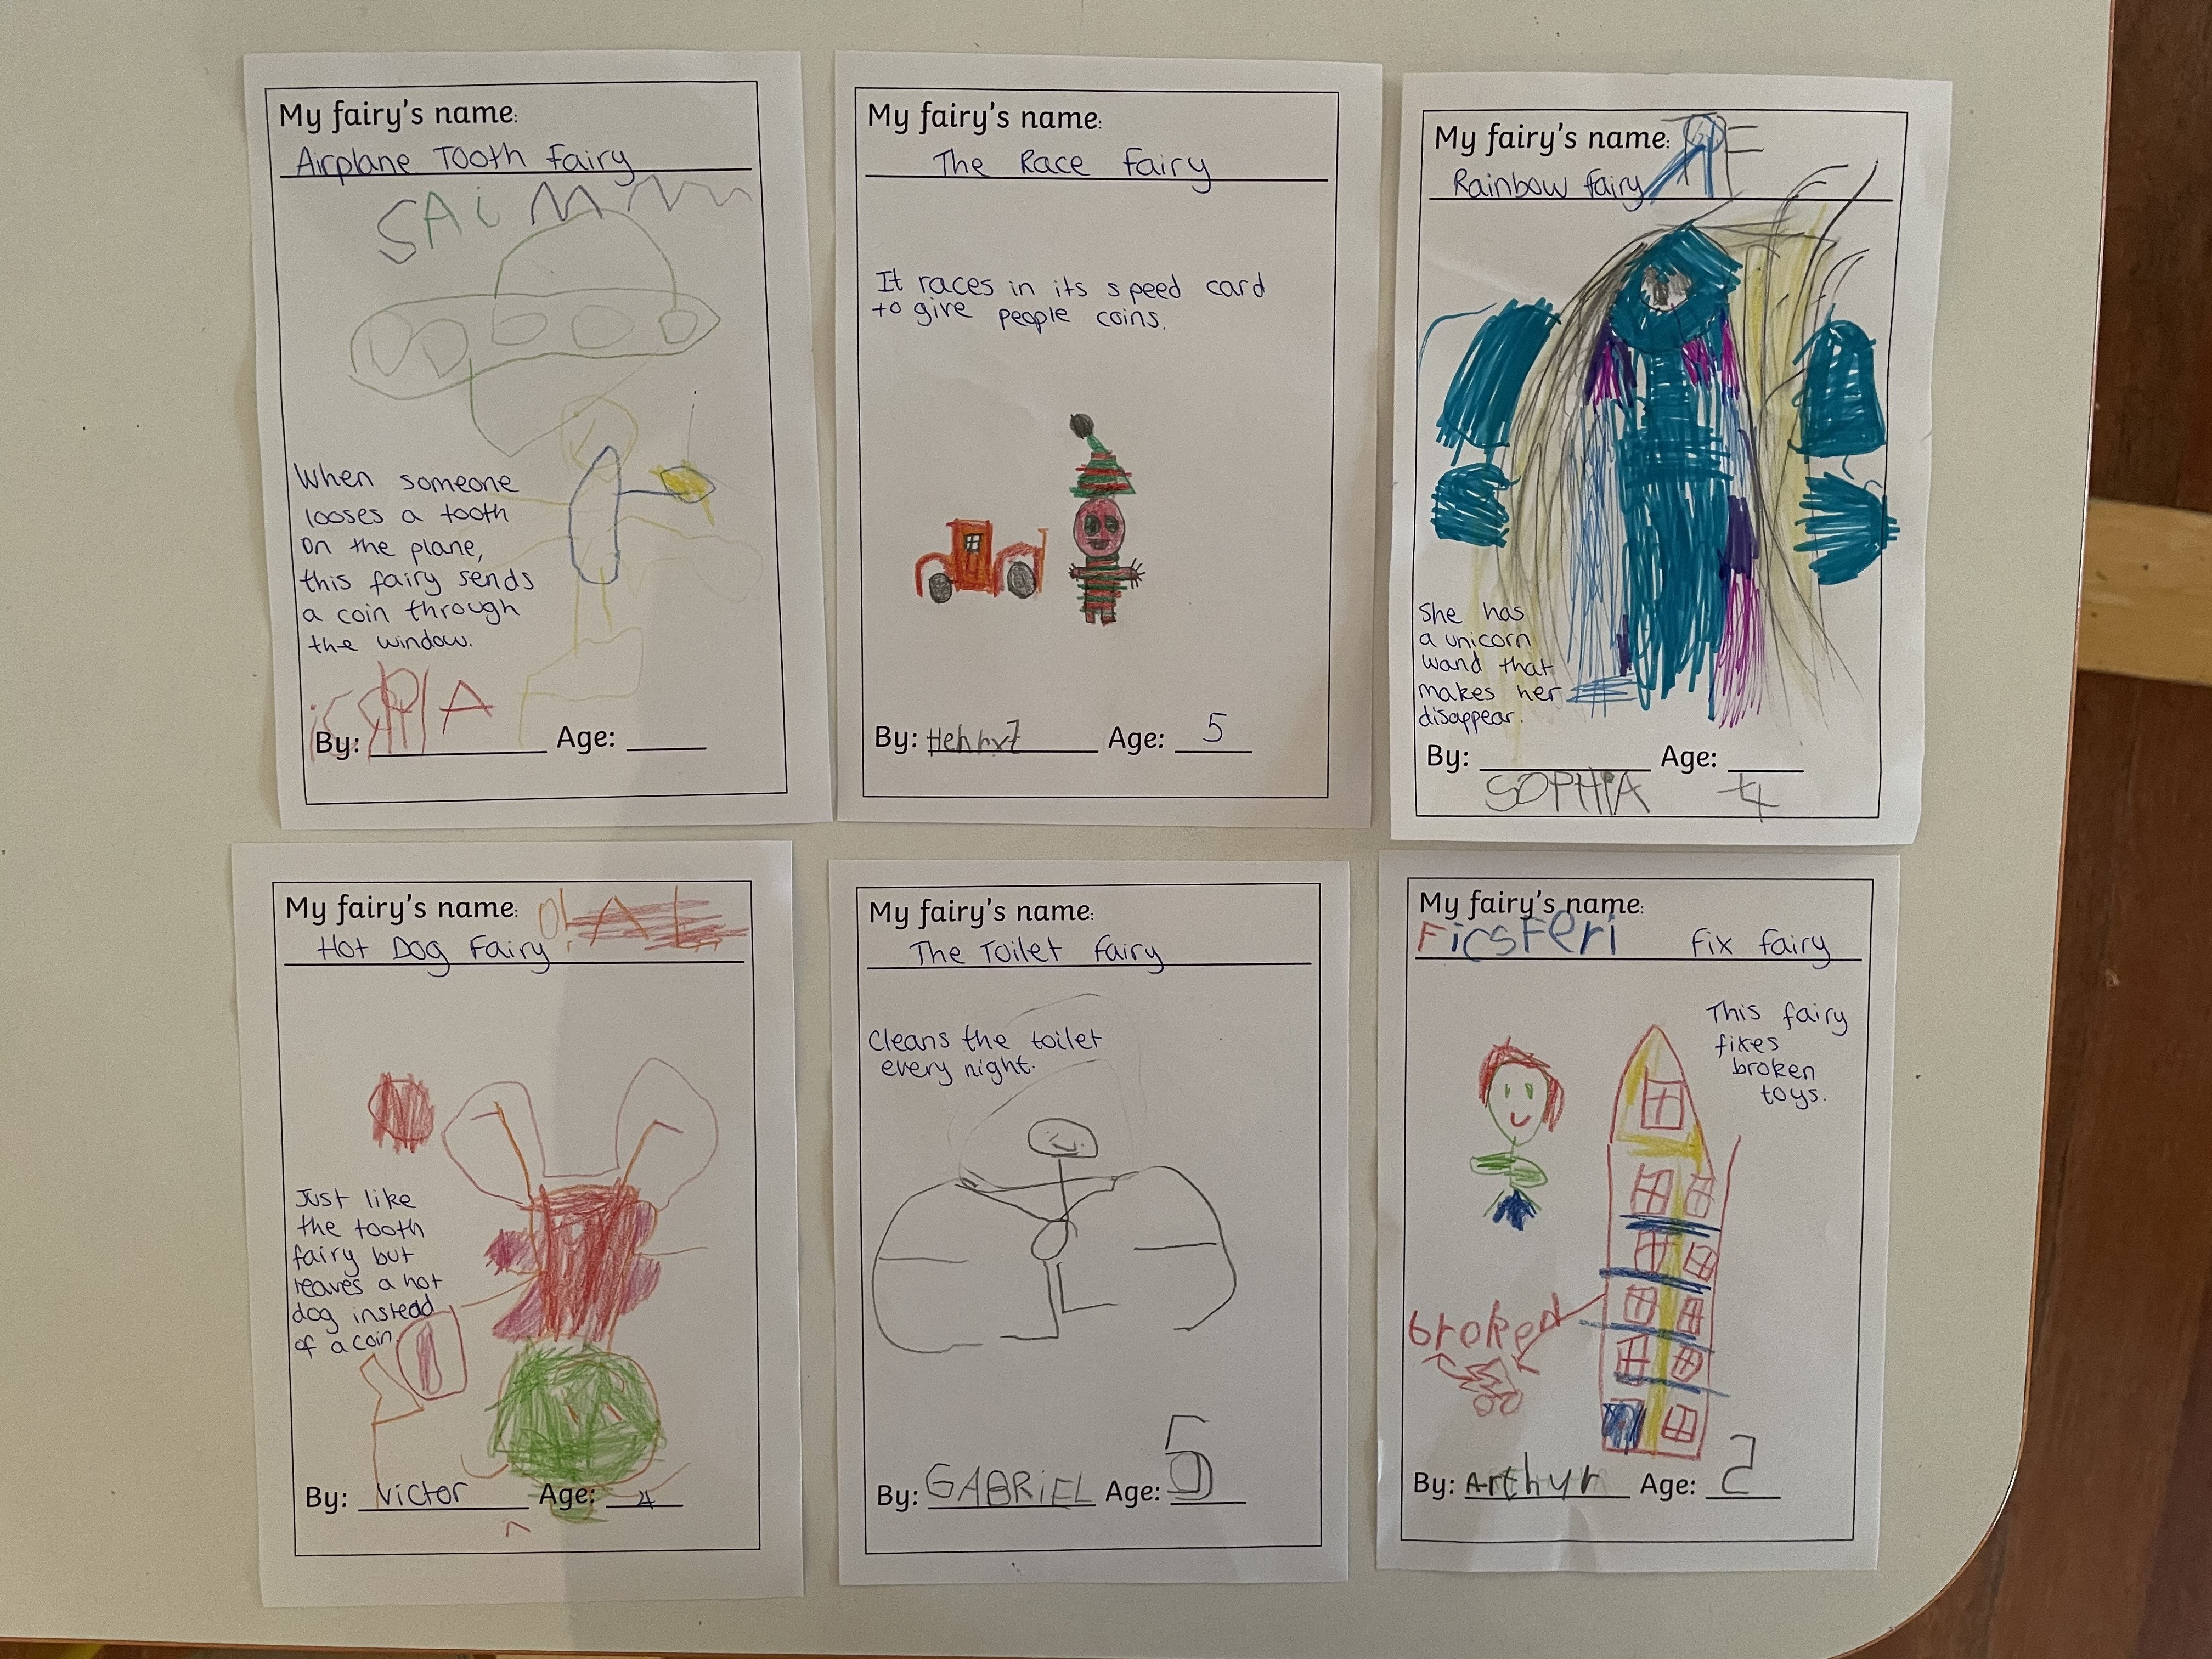 My fairy's name:
Airplane Tooth Fairy
When someone
looses a tooth
on the plane,
this fairy sends
a coin through
the window.
By:
Age:
My fairy's name:
The Race Fairy
It races in its speed card
to give people coins.
By:
Age: 5
My fairy's name:
Rainbow Fairy
She has
a unicorn
wand that
makes her
disappear.
By:
Age:
SOPHIA
4
My fairy's name:
Hot Dog Fairy
Just like
the tooth
fairy but
leaves a hot
dog instead
of a coin.
By: Victor Age: 4
My fairy's name:
The Toilet Fairy
Cleans the toilet
every night.
By: GABRIEL Age: 5
My fairy's name:
FicsFeri Fix fairy
This fairy
fixes
broken
toys.
broken
By: Arthur Age: